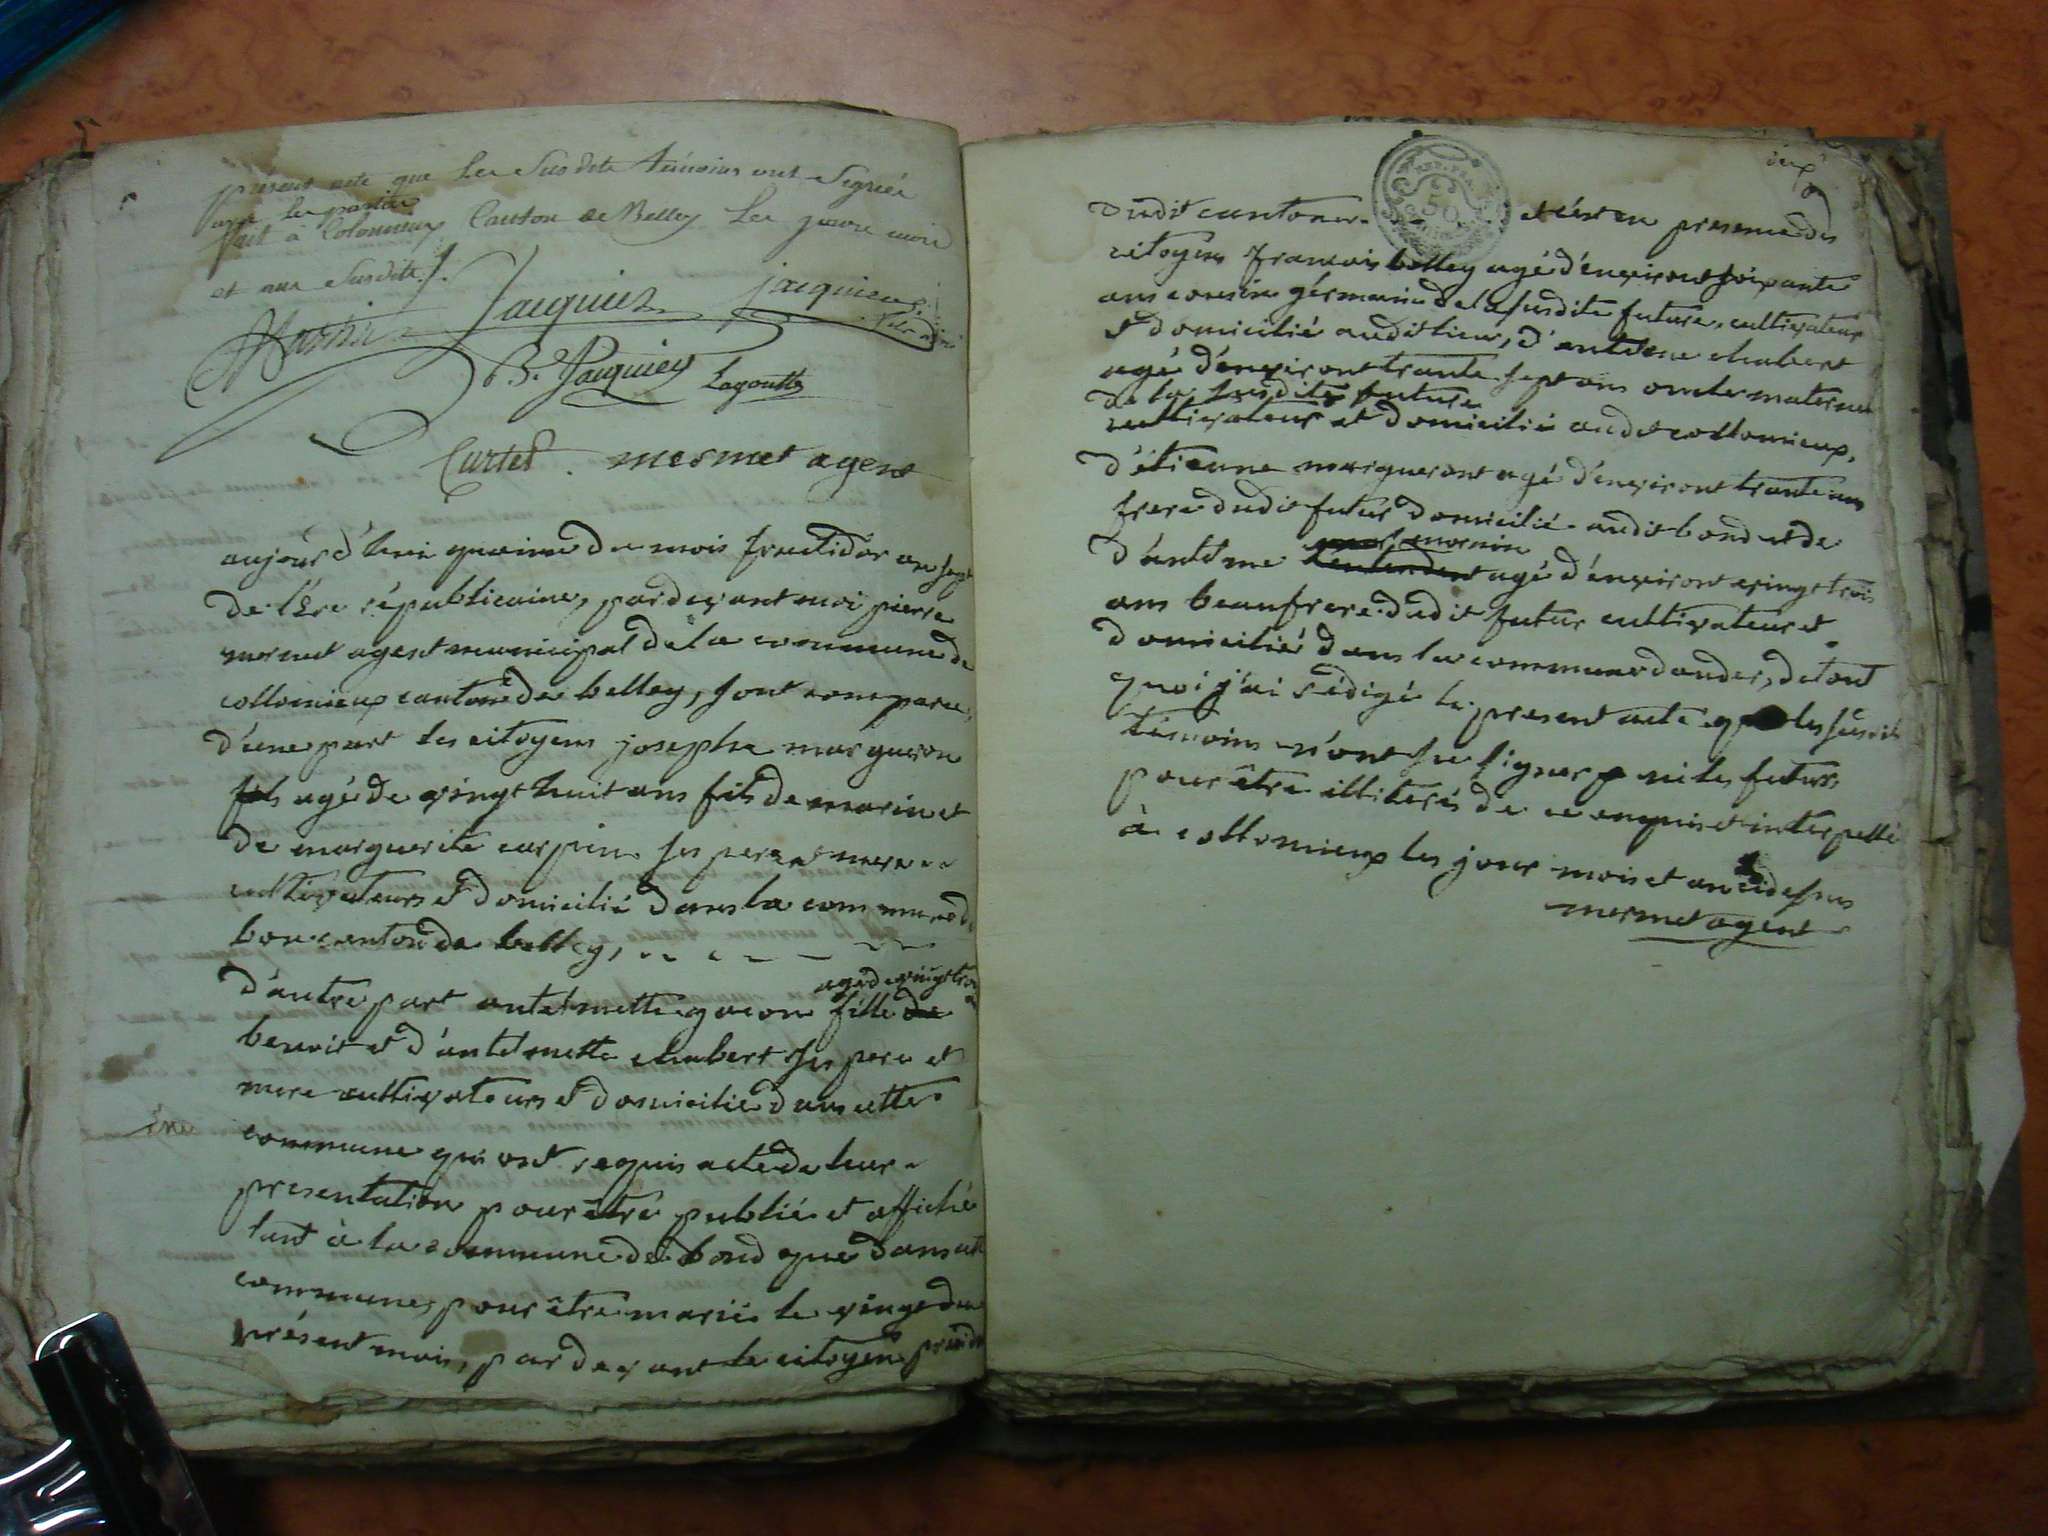 présent acte que les Susdits témoins ont Signés
avec les parties
fait à Colomieux Canton de Belley Les jours mois
et an Susdits
Martin Jacquier jacquier
B. Jacquier Lagoutte
Curtet mermet agent
aujourd'hui quainse du mois fructidor an sept
de l'Ere républicaine, pardevant moi pierre
mermet agent municipal de la commune de
collomieux canton de belley, sont comparu,
d'une part les citoyens josephe margueron
fils agé de vingt huit ans fils de marin et
de marguerite carpin ses pere et mere
cultivateurs et domicilié dans la commune de
bon canton de belley,
agé de vingt trois
d'autre part antelmette guson fille de
benoit et d'antelmette chabert ses pere et
mere cultivateurs et domicilié dans cette
commune qui ont requis acte de leur
presentation pour être publié et affiché
tant à la commune de bond que dans cette
commune, pour être mariée le vingt du
présent mois, pardevant le citoyen présid
deux
dudit canton et c'est en presence des
citoyens francois belley agé d'environt soixante
ans cousin germain de la susdite future, cultivateur
et domicilié audit lieu, d'antelme chabert
agé d'environt trante sept ans oncle maternel
de la susdite future
cultivateur et domicilié audit collomieux,
d'étienne margueront agé d'environt trante ans
frere dudit futur domicilié audit bond et de
mornin
d'antelme agé d'environt vingt trois
ans beaufrere dudit futur cultivateur et
domicilié dans la commune d'andes, de tout
quoi j'ai rédigé le present acte que les susdits
témoins n'ont su signer ni les futurs
pour être illiterés de ce enquis et interpellé
à collomieux les jour mois et an cidessus
mermet agent